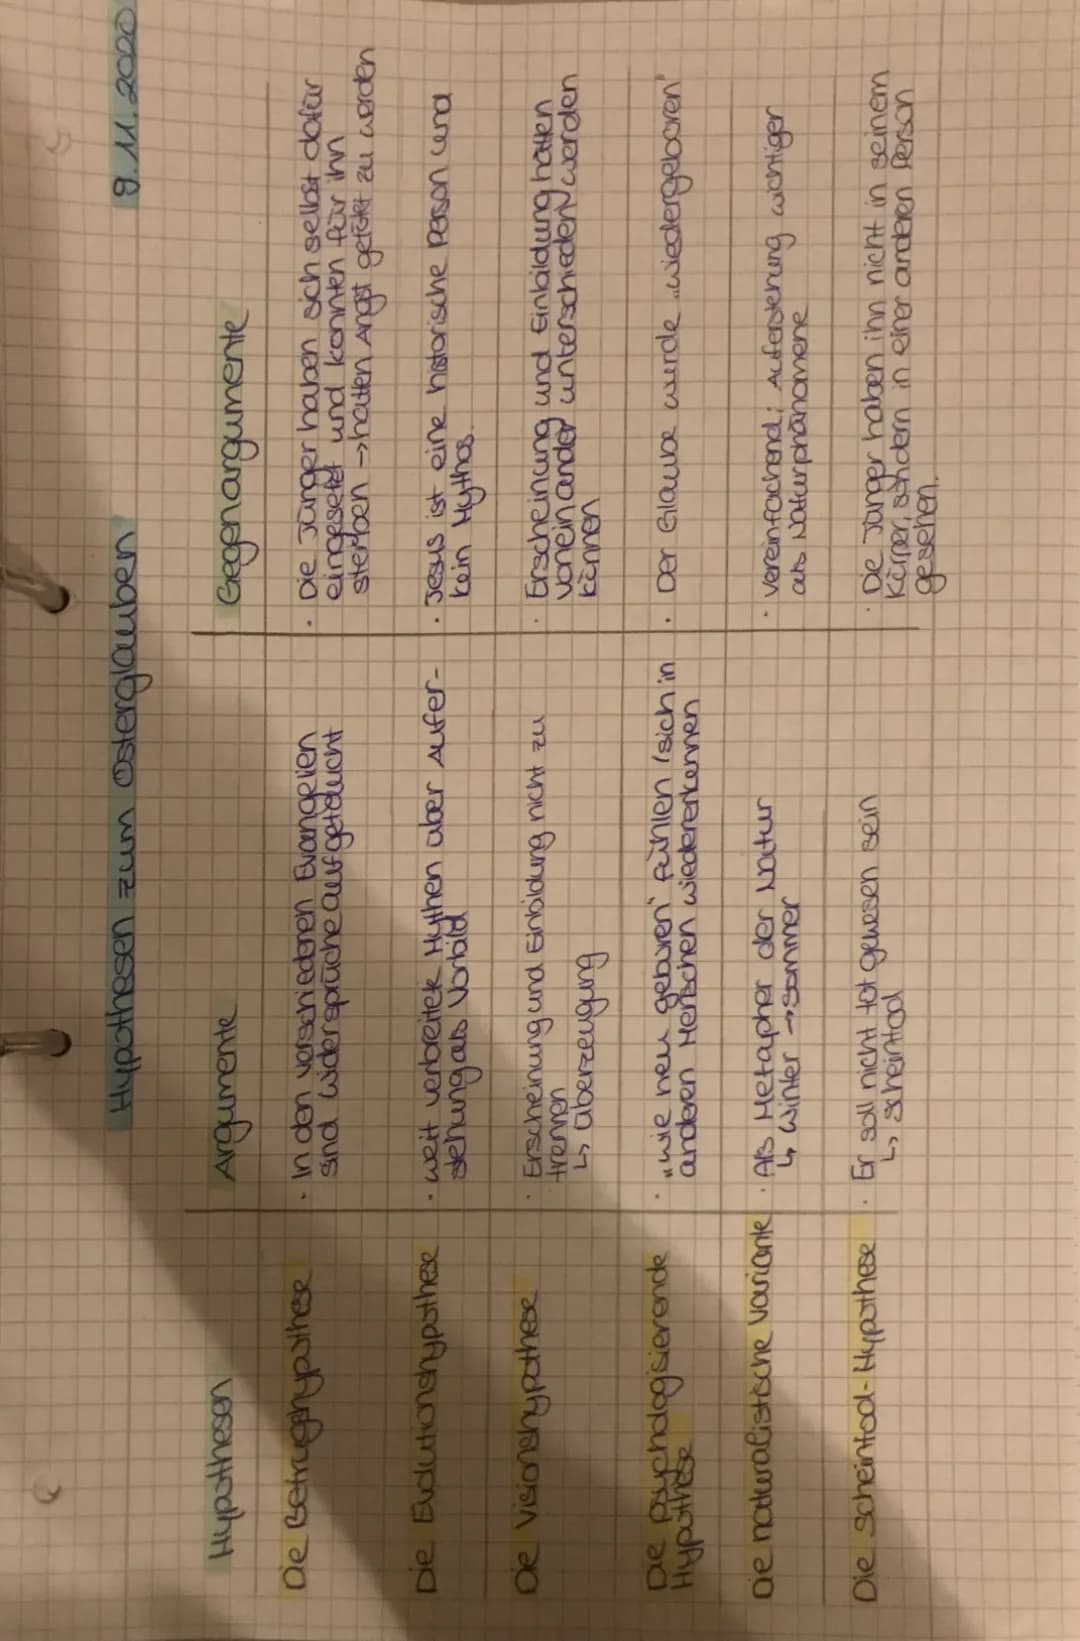 Hypothesen zum Osterglauben 9.11.2020
Hypothesen Argumente Gegenargumente
Die Betrugshypothese
· In den verschiedenen Evangelien
sind Widersprüche aufgetaucht
· Die Jünger haben sich selbst dafür
eingesetzt und konnten für ihn
sterben → hatten Angst getötet zu werden
Die Evolutionshypothese
· weit verbreitete Mythen über Aufer-
stehung als Vorbild
· Jesus ist eine historische Person und
kein Mythos.
Die Visionshypothese
· Erscheinung und Einbildung nicht zu
trennen
↳ Überzeugung
· Erscheinung und Einbildung hätten
voneinander unterschieden werden
können
Die psychologisierende
Hypothese
· „wie neu geboren" fühlen / sich in
anderen Menschen wiedererkennen
· Der Glaube wurde „wiedergeboren"
Die naturalistische Variante
· Als Metapher der Natur
↳ Winter → Sommer
· vereinfachend; Auferstehung wichtiger
als Naturphänomene
Die Scheintod-Hypothese
· Er soll nicht tot gewesen sein
↳ scheintod
· Die Jünger haben ihn nicht in seinem
Körper, sondern in einer anderen Person
gesehen.